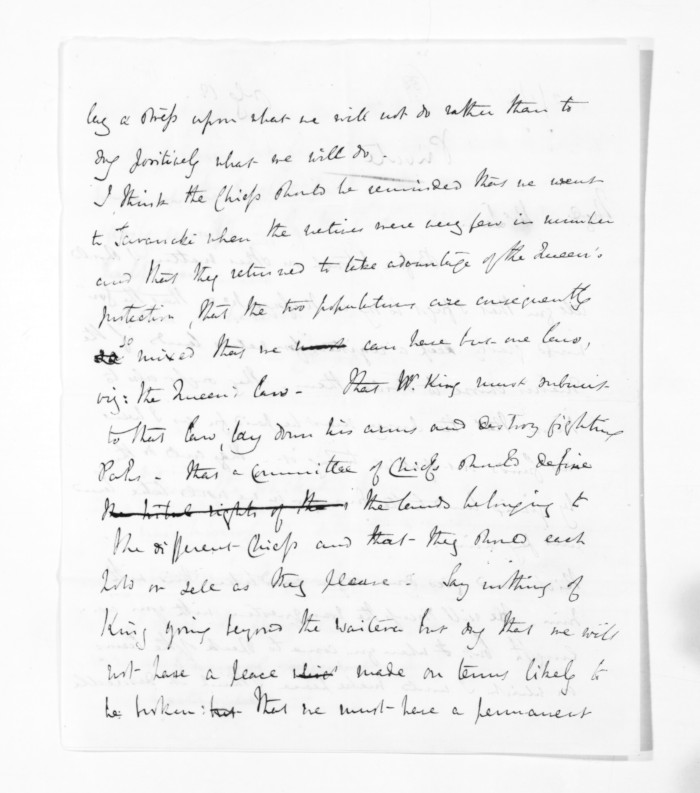 lay a stress upon what we will not do rather than to
say positively what we will do -
I think the Chiefs should be reminded that we went
to Taranaki when the natives were very few in number
and that they returned to take advantage of the Queen's
protection, that the two populations are consequently
so mixed that we must can have but one law,
viz: the Queen's law - That W. King must submit
to that law, lay down his arms and destroy fighting
Pahs - that a Committee of Chiefs should define
the tribal rights of the the lands belonging to
the different Chiefs and that they should each
hold or sell as they please: Say nothing of
King going beyond the Waitera but say that we will
not have a peace made on terms likely to
be broken: but That we must have a permanent